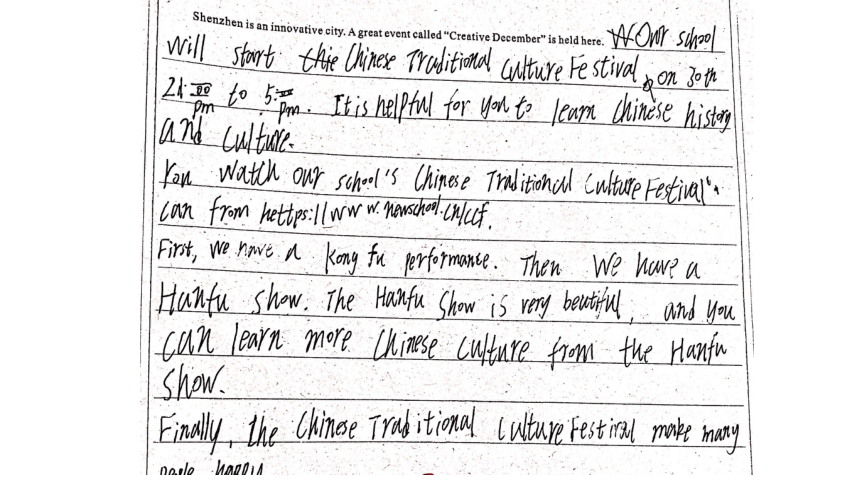 Shenzhen is an innovative city. A great event called "Creative December" is held here. Our school
will start the Chinese Traditional Culture Festival on 30th
2:00 pm to 5:00 pm. It is helpful for you to learn Chinese history
and culture.
You watch our school's Chinese Traditional Culture Festival's
can from hettps://www.newschool.cn/ccf.
First, We have a kong fu performance. Then We have a
Hanfu show. The Hanfu Show is very beutiful, and you
can learn more Chinese culture from the Hanfu
show.
Finally, the Chinese Traditional Culture Festival make many
happy